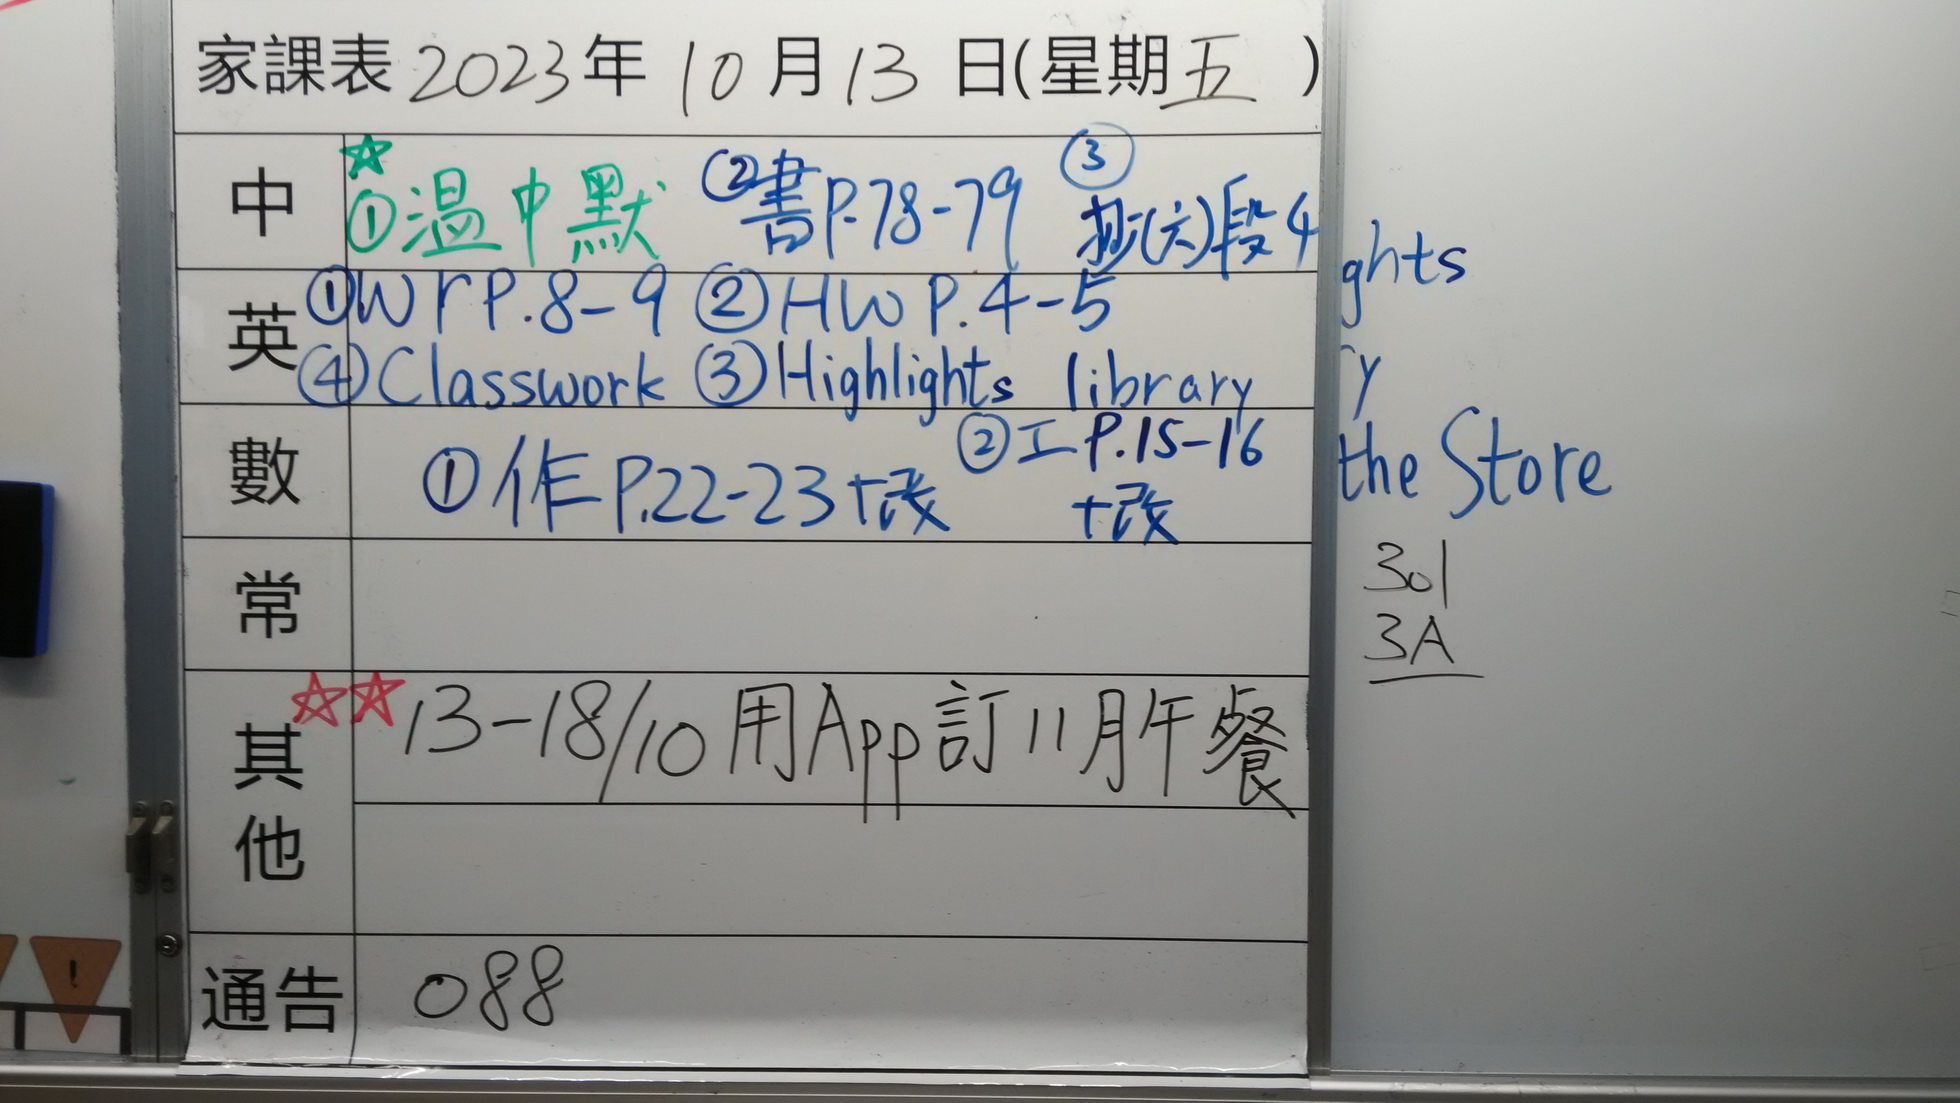 家課表 2023年 10月 13日(星期五)
中 ☆①溫中默 ②書P.78-79 ③ (六)段4
英 ①Wr P.8-9 ②HW P.4-5
④Classwork ③Highlights library
數 ①作P.22-23+改 ②工P.15-16
+改
常
其他 ☆☆13-18/10 用App訂11月午餐
通告 088
ghts
y
the Store
301
3A
!